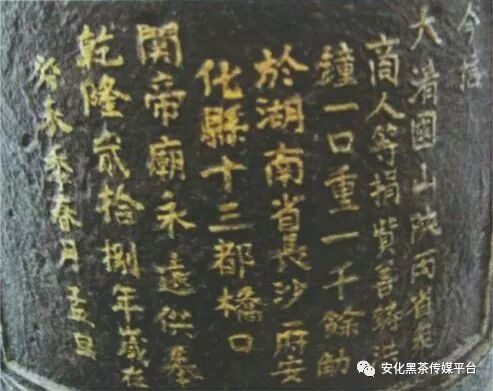 今在
大清國山陝兩省眾
商人等捐貲善鑄洪
鐘一口重一千餘觔
於湖南省長沙府安
化縣十三都橋口
關帝廟永遠供奉
乾隆貳拾捌年歲在
癸未季春月 孟旦
安化黑茶传媒平台